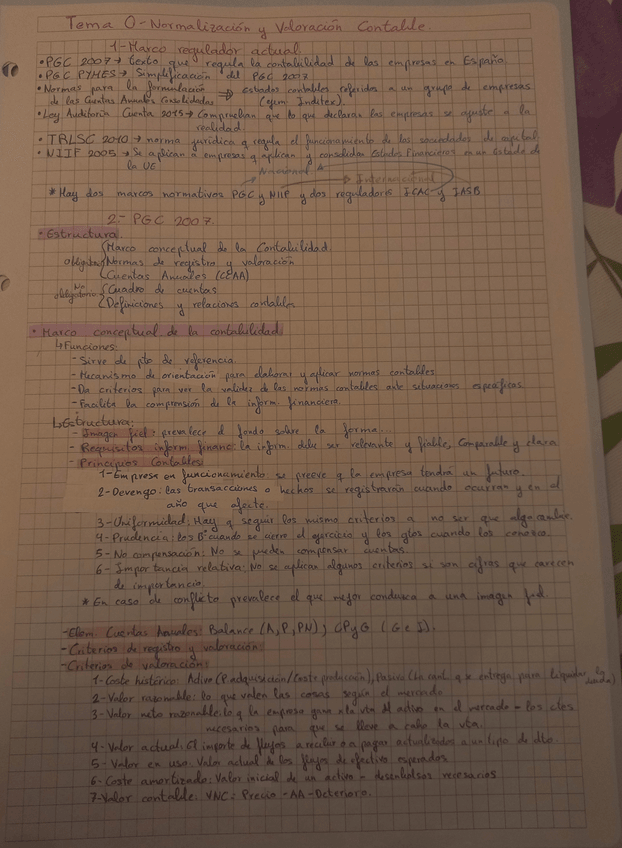 Tema 0 - Normalización y Valoración Contable.
1- Marco regulador actual
• PGC 2007 → texto que regula la contabilidad de las empresas en España.
• PGC PYMES → Simplificación del PGC 2007
• Normas para la formulación ⇒ estados contables referidos a un grupo de empresas
de las Cuentas Anuales Consolidadas (ejem. Inditex).
• Ley Auditoría Cuenta 2015 → Comprueban que lo que declaran las empresas se ajuste a la
realidad
• TRLSC 2010 → norma jurídica q regula el funcionamiento de las sociedades de capital
• NIIF 2005 → Se aplican a empresas q aplican y consolidan Estados Financieros en un Estado de
la UE
Nacional
Internacional
* Hay dos marcos normativos PGC y NIIF y dos reguladores ICAC y IASB
2.- PGC 2007.
• Estructura
Marco conceptual de la Contabilidad
obligatorio Normas de registro y valoración
Cuentas Anuales (CCAA)
No obligatorio Cuadro de cuentas
Definiciones y relaciones contables
• Marco conceptual de la contabilidad
↳ Funciones:
- Sirve de pto de referencia.
- Mecanismo de orientación para elaborar y aplicar normas contables
- Da criterios para ver la validez de las normas contables ante situaciones específicas.
- Facilita la comprensión de la inform. financiera.
↳ Estructura:
- Imagen fiel: prevalece el fondo sobre la forma...
- Requisitos inform. financ: la inform. debe ser relevante y fiable, Comparable y clara
- Principios Contables
1- Empresa en funcionamiento se preeve q la empresa tendrá un futuro.
2- Devengo: las transacciones o hechos se registrarán cuando ocurran y en el
año que afecte.
3- Uniformidad: Hay q seguir los mismo criterios a no ser que algo cambie.
4- Prudencia: los Bº cuando se cierre el ejercicio y los gtos cuando los conozca.
5- No compensación: No se pueden compensar cuentas.
6- Importancia relativa: No se aplican algunos criterios si son cifras que carecen
de importancia.
* En caso de conflicto prevalece el que mejor conduzca a una imagen fiel.
- Elem. Cuentas Anuales: Balance (A, P, PN); CPyG (G e I).
- Criterios de registro y valoración
- Criterios de valoración:
1- Coste histórico: Activo (P. adquisición/Coste producción), Pasivo (La cant. q se entrega para liquidar la deuda)
2- Valor razonable: lo que valen las cosas según el mercado
3- Valor neto razonable: lo q la empresa gana a la vta del activo en el mercado - los ctes
necesarios para que se lleve a cabo la vta.
4- Valor actual: El importe de flujos a recibir o a pagar actualizados a un tipo de dto
5- Valor en uso: Valor actual de los flujos de efectivo esperados
6- Coste amortizado: Valor inicial de un activo - desembolsos necesarios
7- Valor contable: VNC: Precio - AA - Deterioro.